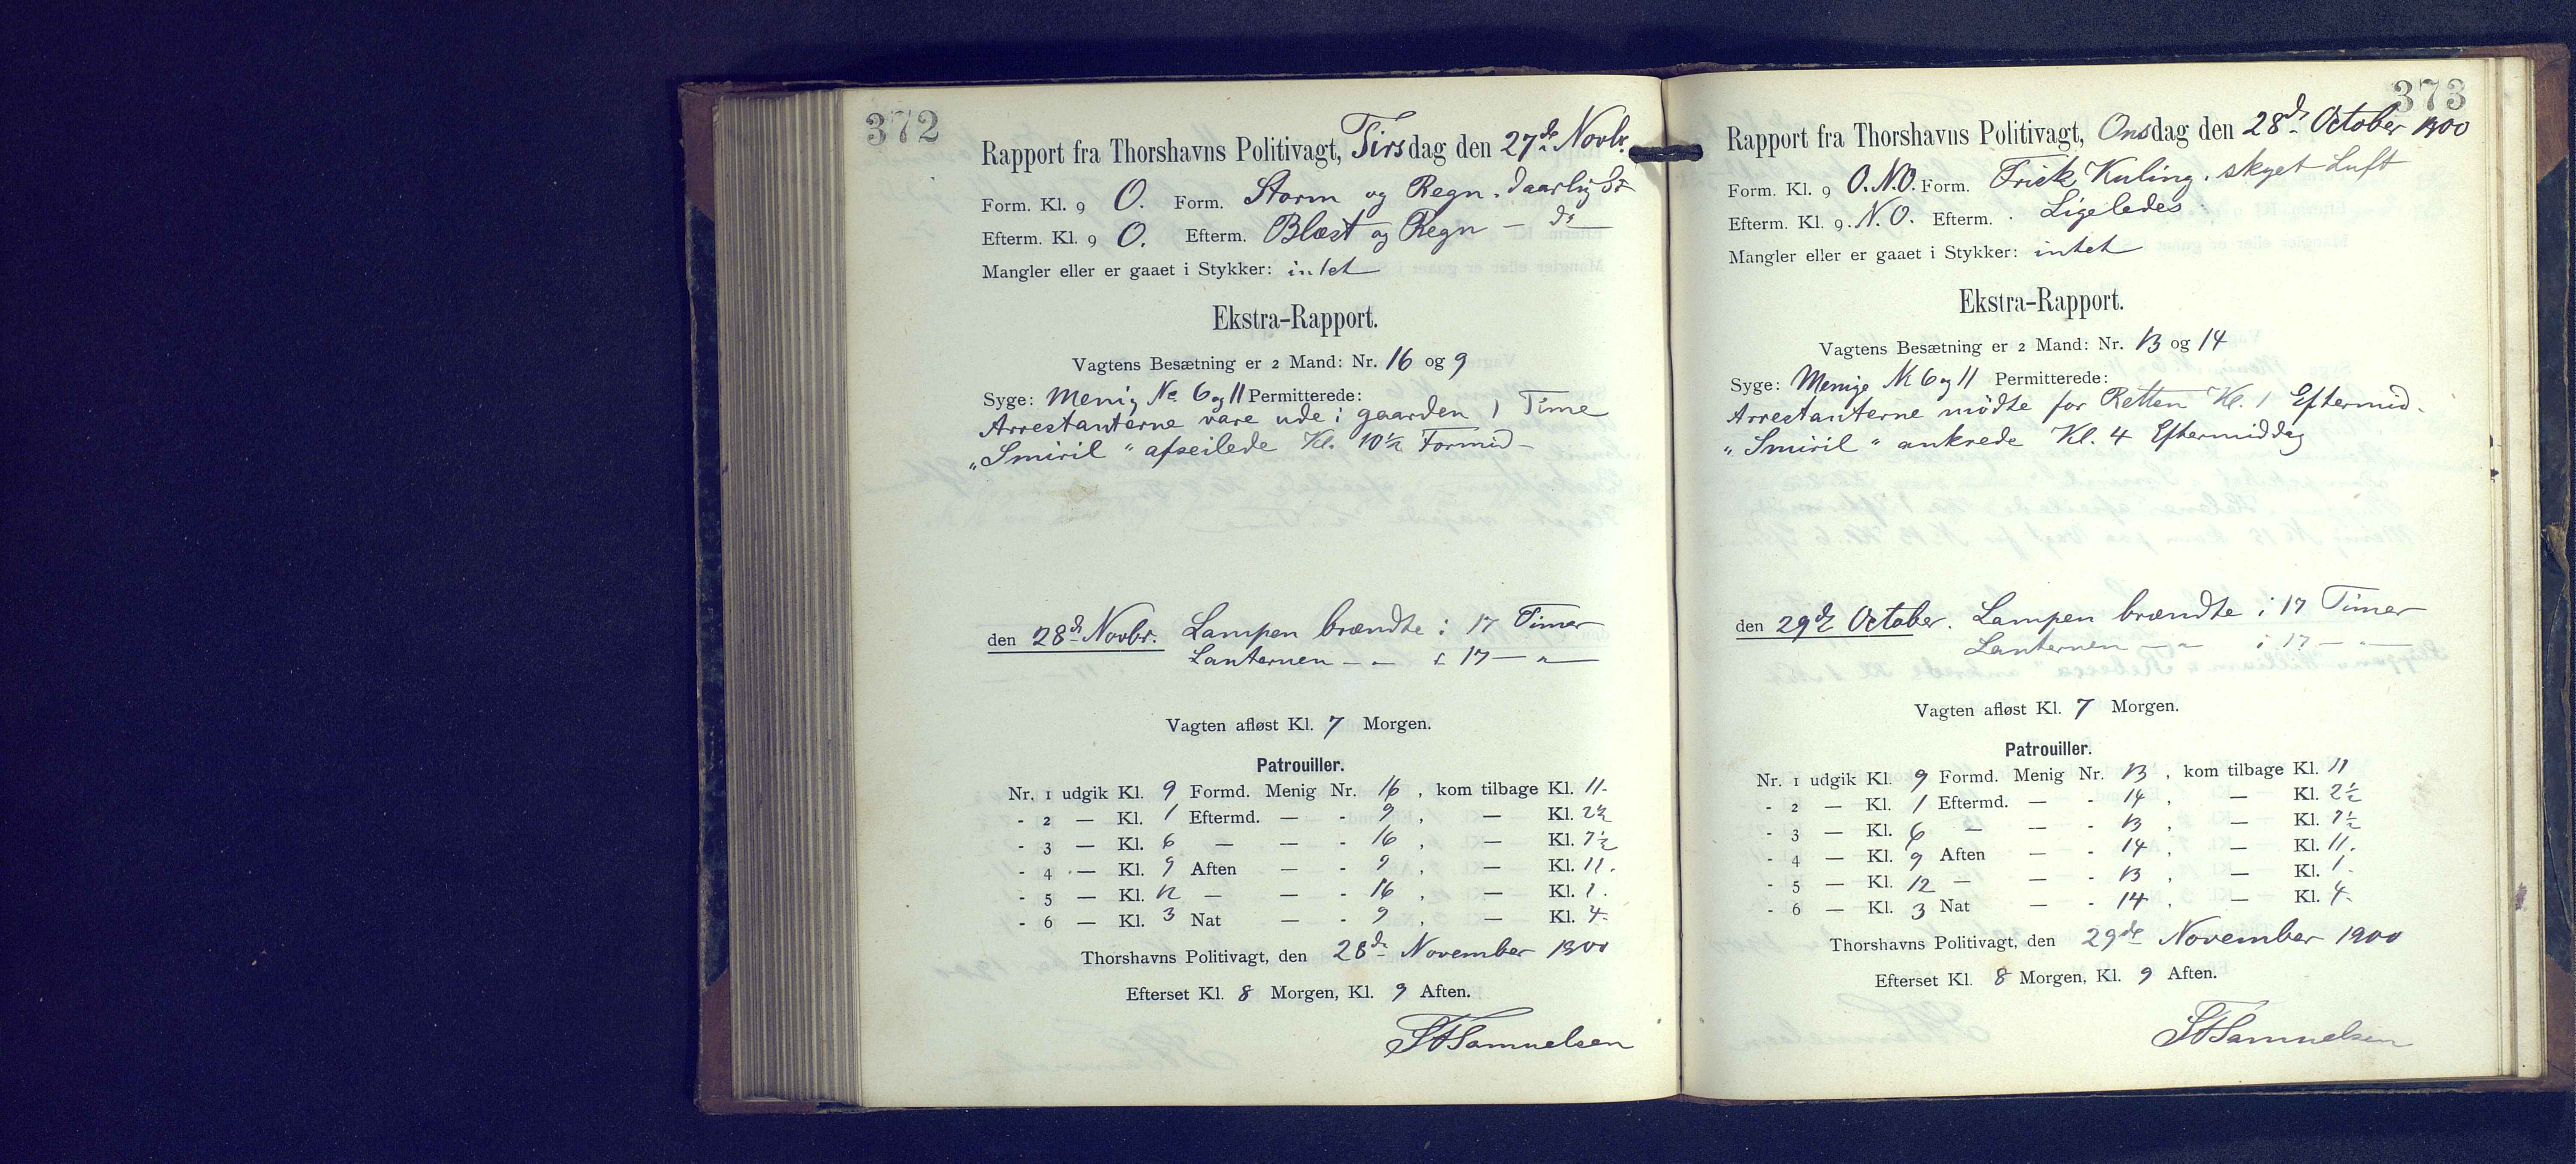 372
Rapport fra Thorshavns Politivagt, Tirsdag den 27de Novbr.
Form. Kl. 9 O. Form. Storm og Regn. daarlig Sø
Efterm. Kl. 9 O. Efterm. Blæst og Regn — do —
Mangler eller er gaaet i Stykker: intet
Ekstra-Rapport.
Vagtens Besætning er 2 Mand: Nr. 16 og 9
Syge: Menig No 6 og 11 Permitterede:
Arrestanterne vare ude i gaarden 1 Time
„Smiril“ afseilede Kl. 10½ Formid-
den 28de Novbr. Lampen brændte i 17 Timer
Lanternen — „ i 17 — „ —
Vagten afløst Kl. 7 Morgen.
Patrouiller.
Nr. 1 udgik Kl. 9 Formd. Menig Nr. 16 , kom tilbage Kl. 11.
- 2 — Kl. 1 Eftermd. — - 9 , — Kl. 2½
- 3 — Kl. 6 — — - 16 , — Kl. 7½
- 4 — Kl. 9 Aften — - 9 , — Kl. 11.
- 5 — Kl. 12 — — - 16 , — Kl. 1.
- 6 — Kl. 3 Nat — - 9 , — Kl. 4.
Thorshavns Politivagt, den 28de November 1900
Efterset Kl. 8 Morgen, Kl. 9 Aften.
SASamuelsen
373
Rapport fra Thorshavns Politivagt, Onsdag den 28de October 1900
Form. Kl. 9 O.N.O. Form. Frisk Kuling. skyet Luft
Efterm. Kl. 9. N.O. Efterm. Ligeledes.
Mangler eller er gaaet i Stykker: intet
Ekstra-Rapport.
Vagtens Besætning er 2 Mand: Nr. 13 og 14
Syge: Menige No 6 og 11 Permitterede:
Arrestanterne mödte for Retten Kl. 1 Eftermid.
„Smiril“ ankrede Kl. 4 Eftermiddag
den 29de October. Lampen brændte i 17 Timer
Lanternen — „ i 17 — „ —
Vagten afløst Kl. 7 Morgen.
Patrouiller.
Nr. 1 udgik Kl. 9 Formd. Menig Nr. 13 , kom tilbage Kl. 11
- 2 — Kl. 1 Eftermd. — - 14 , — Kl. 2½
- 3 — Kl. 6 — — - 13 , — Kl. 7½
- 4 — Kl. 9 Aften — - 14 , — Kl. 11.
- 5 — Kl. 12 — — - 13 , — Kl. 1.
- 6 — Kl. 3 Nat — - 14 , — Kl. 4.
Thorshavns Politivagt, den 29de November 1900
Efterset Kl. 8 Morgen, Kl. 9 Aften.
SASamuelsen